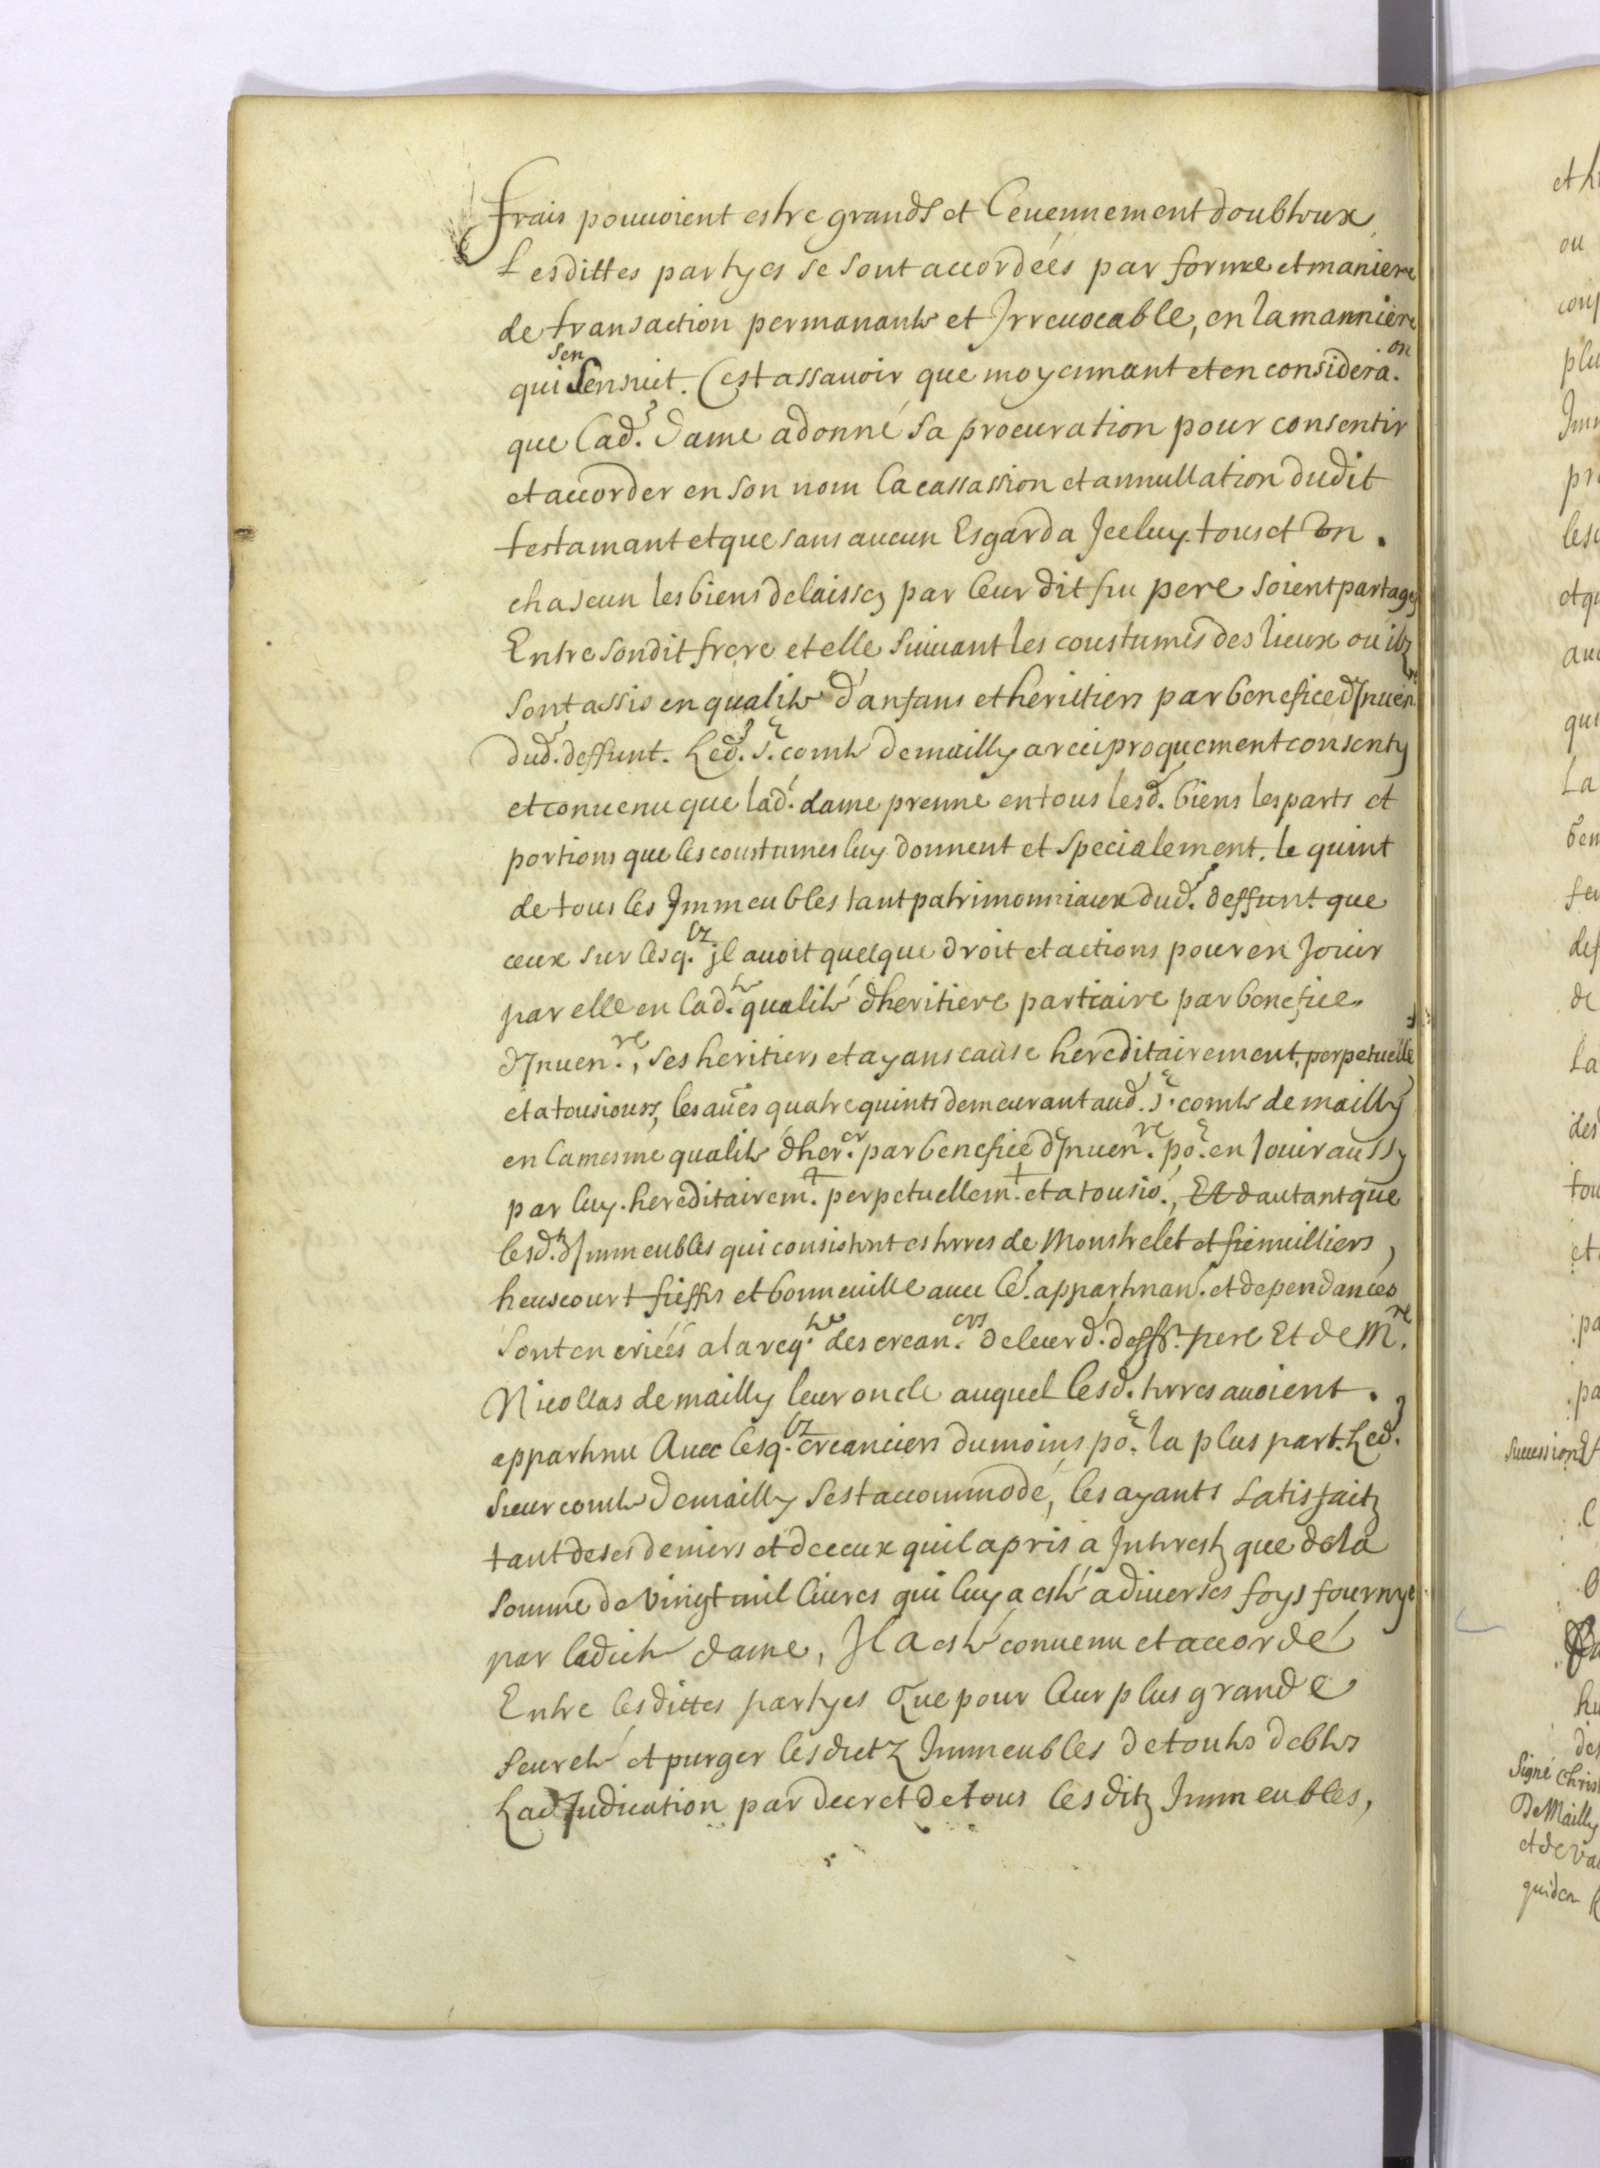 frais pouuoient estre grands et leuennement doubteux,
Lesdittes partyes se sont accordéés par forme et maniere
de transaction permanante et Irreuocable, en la manniere
qui Sensuit. Cest assauoir que moyennant et en considera.on
que lad. dame a donné sa procuration pour consentir
et accorder en son nom la cassassion et annullation dudit
testamant et que sans aucun Esgard a Jceluy tous et Un.
chascun les biens delaissez par leur dit feu pere soient partagez
Entre sondit frere et elle suiuant les coustumes des lieux ou ilz
sont assis en qualite d'anfans et herittiers par benefice dJnuen.re
dud. deffunt. Led. s.r comte de mailly a reciproquement consenty
et conuenu que lad. dame prenne en tous lesd. biens les parts et
portions que les coustumes luy donnent et specialement. le quint
de tous les Jmmeubles tant patrimonniaux dud. deffunt que
ceux sur lesq.lz jl auoit quelque droit et actions pour en Jouir
par elle en lad.te qualité dheritiere partiaire par benefice
dJnuen.re, ses heritiers et ayans cause hereditairement, perpetuellet
et a tousiours, les aūes quatre quints demeurant aud. s.r comte de mailly
en la mesme qualite dher.er par benefice dJnuen.re po.r en Jouir aussy
par luy hereditairem.t perpetuellem.t et a tousio., Et dautant que
lesd. Jmmeubles qui consistent es terres de Monstrelet et fiemuilliers,
heuscourt fieffes et bonneuille auec le. appartenan. et dependances
sont en criéés a la req.te des crean.ers de leur d. deff. pere Et de M.re
Nicollas de mailly leur oncle auquel lesd. terres auoient.
appartenu Auec lesq.lz creanciers du moins po.r la plus part. Led.
sieur comte de mailly sest accommodé, les ayants satisfaitz
tant de ses deniers et de ceux quil a pris a Jnterestz que de la
somme de vingt mil liures qui luy a esté a diuerses foys fournye
par ladicte dame, Jl a esté conuenu et accordé
Entre lesdittes partyes Que pour leur plus grande
seureté et purger lesdictz Jmmeubles de toutes debtes
Ladjudication par decret de tous lesditz Jmmeubles,
et h
ou
plu
pr
et qu
qui
La
de
La
des
tou
et
pa
pa
succession Et
Signé Chris
De Mailly
et de Va